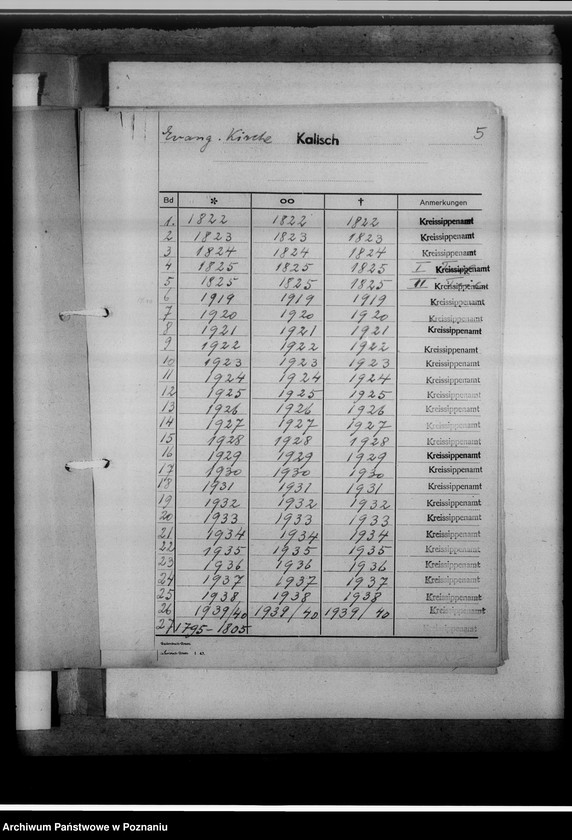 Evang. Kirche Kalisch 5
Bd * oo † Anmerkungen
1. 1822 1822 1822 Kreissippenamt
2 1823 1823 1823 Kreissippenamt
3 1824 1824 1824 Kreissippenamt
4 1825 1825 1825 I Kreissippenamt
5 1825 1825 1825 II Kreissippenamt
6 1919 1919 1919 Kreissippenamt
7 1920 1920 1920 Kreissippenamt
8 1921 1921 1921 Kreissippenamt
9 1922 1922 1922 Kreissippenamt
10 1923 1923 1923 Kreissippenamt
11 1924 1924 1924 Kreissippenamt
12 1925 1925 1925 Kreissippenamt
13 1926 1926 1926 Kreissippenamt
14 1927 1927 1927 Kreissippenamt
15 1928 1928 1928 Kreissippenamt
16 1929 1929 1929 Kreissippenamt
17 1930 1930 1930 Kreissippenamt
18 1931 1931 1931 Kreissippenamt
19 1932 1932 1932 Kreissippenamt
20 1933 1933 1933 Kreissippenamt
21 1934 1934 1934 Kreissippenamt
22 1935 1935 1935 Kreissippenamt
23 1936 1936 1936 Kreissippenamt
24 1937 1937 1937 Kreissippenamt
25 1938 1938 1938 Kreissippenamt
26 1939/40 1939/40 1939/40 Kreissippenamt
27 1795-1805 Kreissippenamt
Archiwum Państwowe w Poznaniu